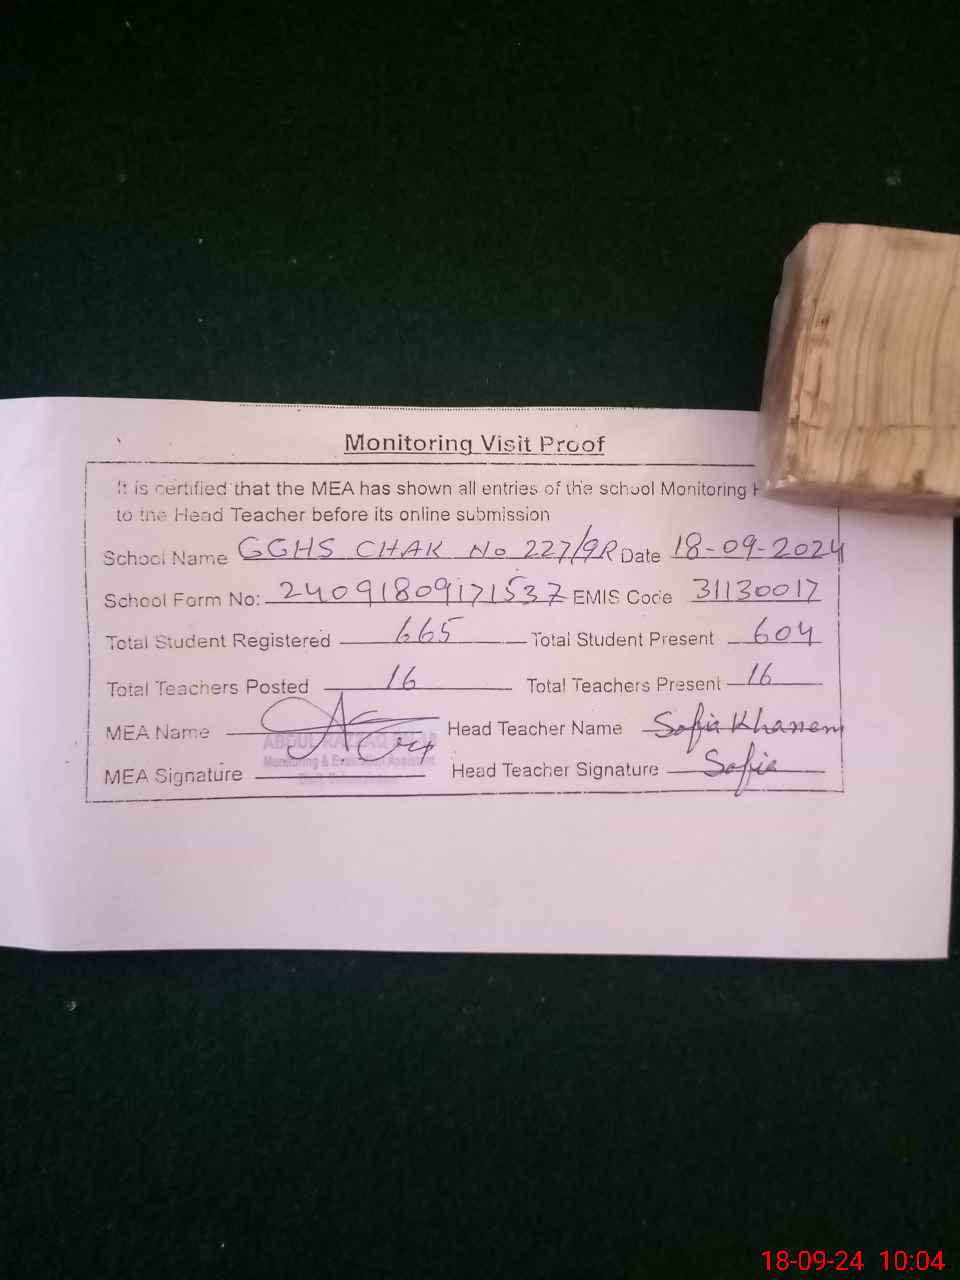 Monitoring Visit Proof
It is certified that the MEA has shown all entries of the school Monitoring
to the Head Teacher before its online submission
School Name GGHS CHAK No 227/9R Date 18-09-2024
School Form No: 24091809171537 EMIS Code 31130017
Total Student Registered 665 Total Student Present 604
Total Teachers Posted 16 Total Teachers Present 16
MEA Name Head Teacher Name Sofia Khanem
ABDUL RAZZAQ
Monitoring & Evaluation Assistant
MEA Signature Head Teacher Signature Sofia
18-09-24 10:04